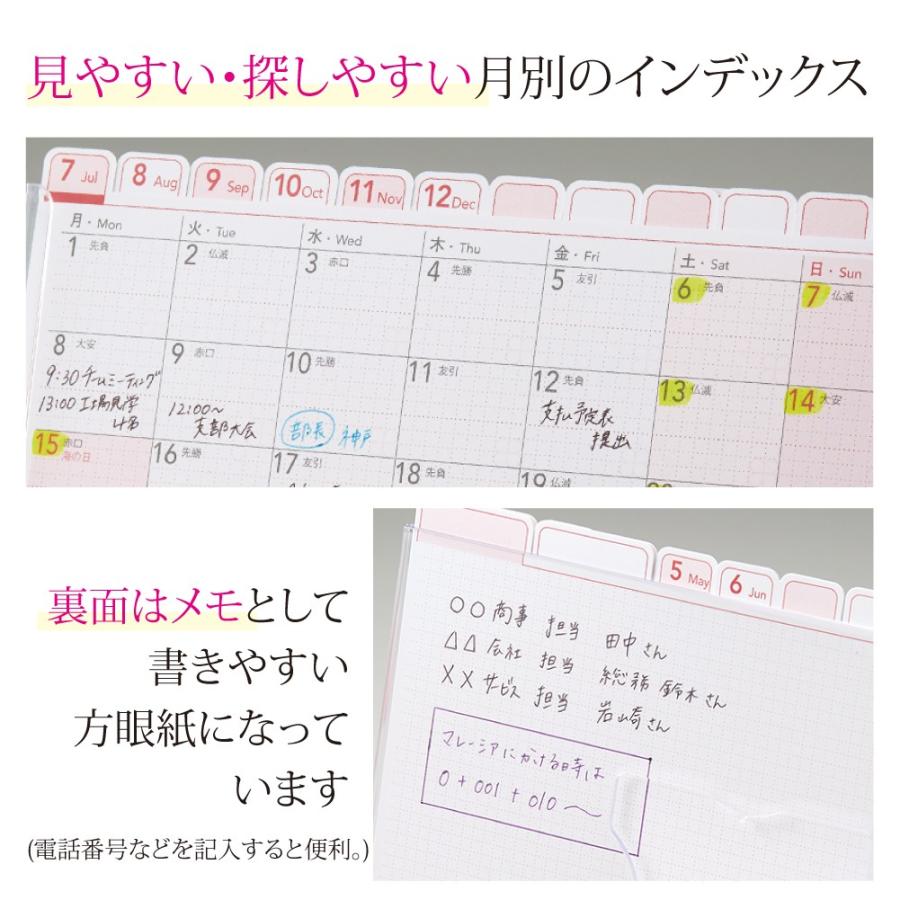 見やすい・探しやすい月別のインデックス
7 Jul 8 Aug 9 Sep 10 Oct 11 Nov 12 Dec
月・Mon 火・Tue 水・Wed 木・Thu 金・Fri 土・Sat 日・Sun
1 先負 2 仏滅 3 赤口 4 先勝 5 友引 6 先負 7 仏滅
8 大安 9 赤口 10 先勝 11 友引 12 先負 13 仏滅 14 大安
9:30 チームミーティング
13:00 工場見学
4名
12:00〜
支部大会
部長 神戸
支払予定表
提出
15 赤口 16 先勝 17 友引 18 先負 19 仏滅
海の日
裏面はメモとして
書きやすい
方眼紙になって
います
(電話番号などを記入すると便利。)
5 May 6 Jun
○○商事 担当 田中さん
△△会社 担当 総務 鈴木さん
××サービス 担当 岩崎さん
マレーシアにかける時は
0+001+010〜